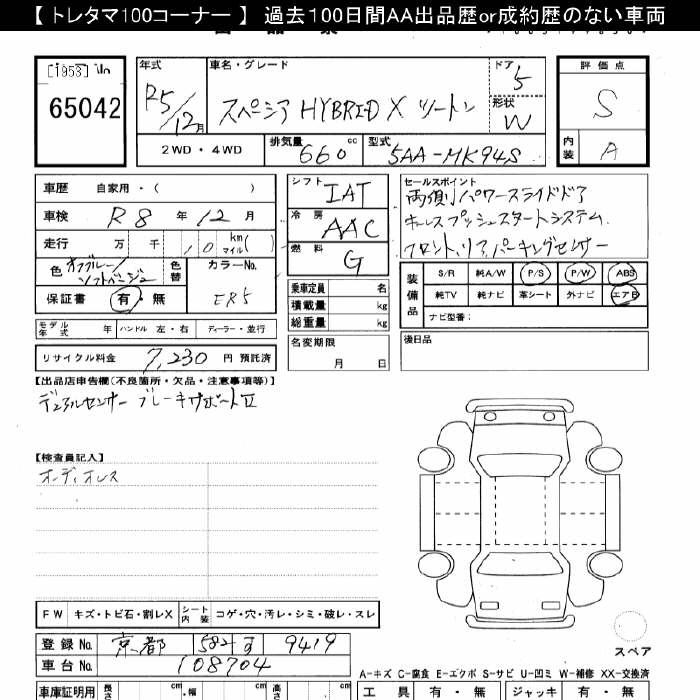 【 トレタマ100コーナー 】 過去100日間AA出品歴or成約歴のない車両
65042
年式 R5/12月
車名・グレード スペーシア HYBRID X ツートン
ドア 5
形状 W
評価点 S
内装 A
2WD・4WD
排気量 660 cc
型式 5AA-MK94S
車歴 自家用・( )
車検 R8 年 12 月
走行 万 千 10 km マイル( )
色 オフブルー/ソフトベージュ
色替
カラーNo. ER5
保証書 有・無
シフト IAT
冷房 AAC
燃料 G
乗車定員 名
積載量 kg
総重量 kg
名変期限 月 日
セールスポイント
両側パワースライドドア
キーレスプッシュスタートシステム
フロント、リア パーキングセンサー
装備品
S/R 純A/W P/S P/W ABS
純TV 純ナビ 革シート 外ナビ エアB
ナビ型番：
後日品
モデル年式 年 ハンドル 左・右 ディーラー・並行
リサイクル料金 7,230 円 預託済
【出品店申告欄(不良箇所・欠品・注意事項等)】
デュアルセンサー ブレーキサポートII
【検査員記入】
オーディオレス
FW キズ・トビ石・割レX シート内装 コゲ・穴・汚レ・シミ・破レ・スレ
登録No. 京都 582 す 9419
車台No. 108704
スペア
A-キズ C-腐食 E-エクボ S-サビ U-凹ミ W-補修 XX-交換済
車庫証明用 長さ cm ・幅 cm 高さ cm
工具 有・無 ジャッキ 有・無